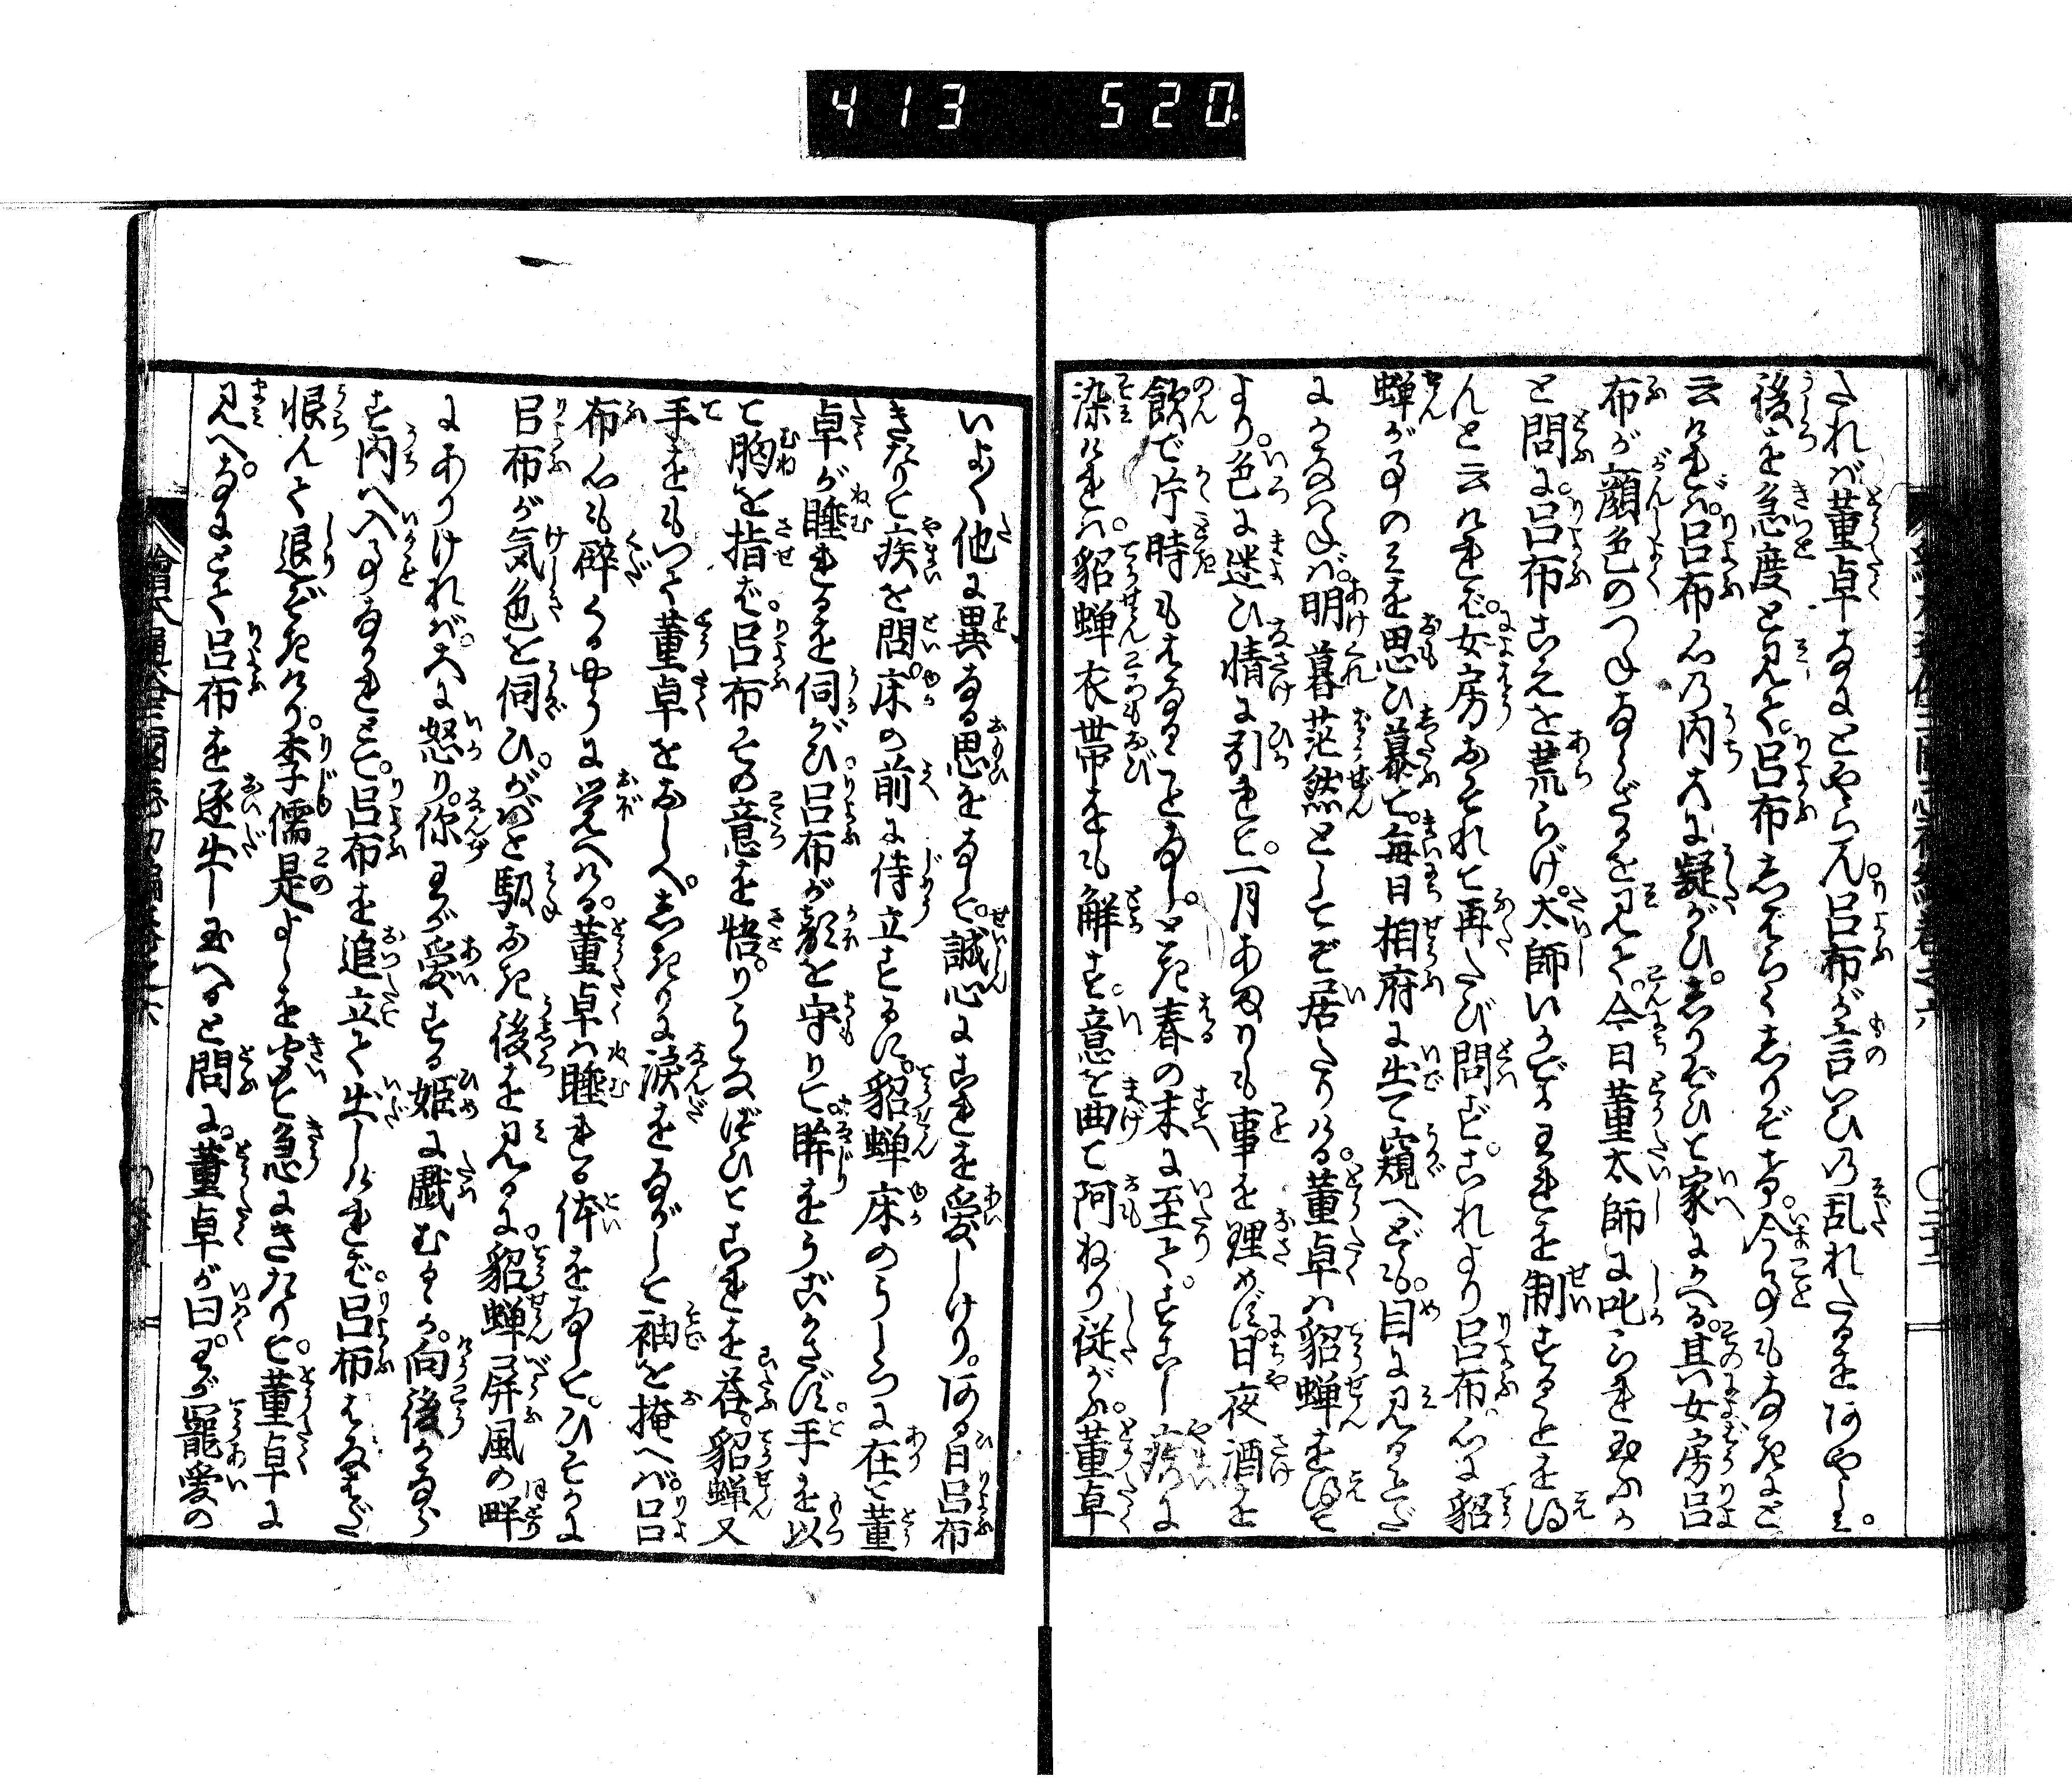 413 520
されば董卓なにとやらん。呂布が言いひの乱れたるをあやしミ。
後を急度と見て。呂布しばらくしりぞけ。今ハ事もなきにと
云けれバ。呂布心の内大に疑がひ。しりぞひて家にかへる。其女房呂
布が顔色のつねならざるを見て。今日董太師に叱られ玉ふか
と問に。呂布こゑを荒らげ。太師いかでかわれを制することを得
んと云けれど。女房おそれて再たび問ず。これより呂布心に貂
蝉が事のミを思ひ慕て。毎日相府に出て窺へども。目に見ることだ
にかなハねバ。明暮茫然としてぞ居たりける。董卓ハ貂蝉を得て
より。色に迷ひ情に引れて。一月あまりも事を理めず。日夜酒を
飲で片時もはなるゝことなし。比ハ春の末に至て。すこし疾に
染けれバ。貂蝉衣帯をも解ず。意を曲て阿ねり従がふ。董卓
いよ〱他に異なる思をなして。誠心にこれを愛しけり。ある日呂布
きたりて疾を問。床の前に侍立するに。貂蝉床のうしろに在て董
卓が睡れるを伺がひ呂布が顔を守りて。眸をうごかさず。手を以
て胸を指せば。呂布その意を悟り。うなづひてこれを荅。貂蝉又
手をもつて董卓をおしへ。しきりに涙をながして袖を掩へバ。呂
布心も砕くるやうに覚へける。董卓ハ睡れる体をなして。ひそかに
呂布が気色を伺ひ。がばと馺おき後を見るに。貂蝉屏風の畔
にありけれバ。大に怒り。你わが愛する姫に戯むるゝか。向後かならず
内へ入事なかれとて。呂布を追立て出しければ。呂布はなはだ
恨んで退ぞきけり。李儒是よしを聞て急にきたりて。董卓に
見へ。なにとて呂布を逐出し玉へると問に。董卓が曰。わが寵愛の